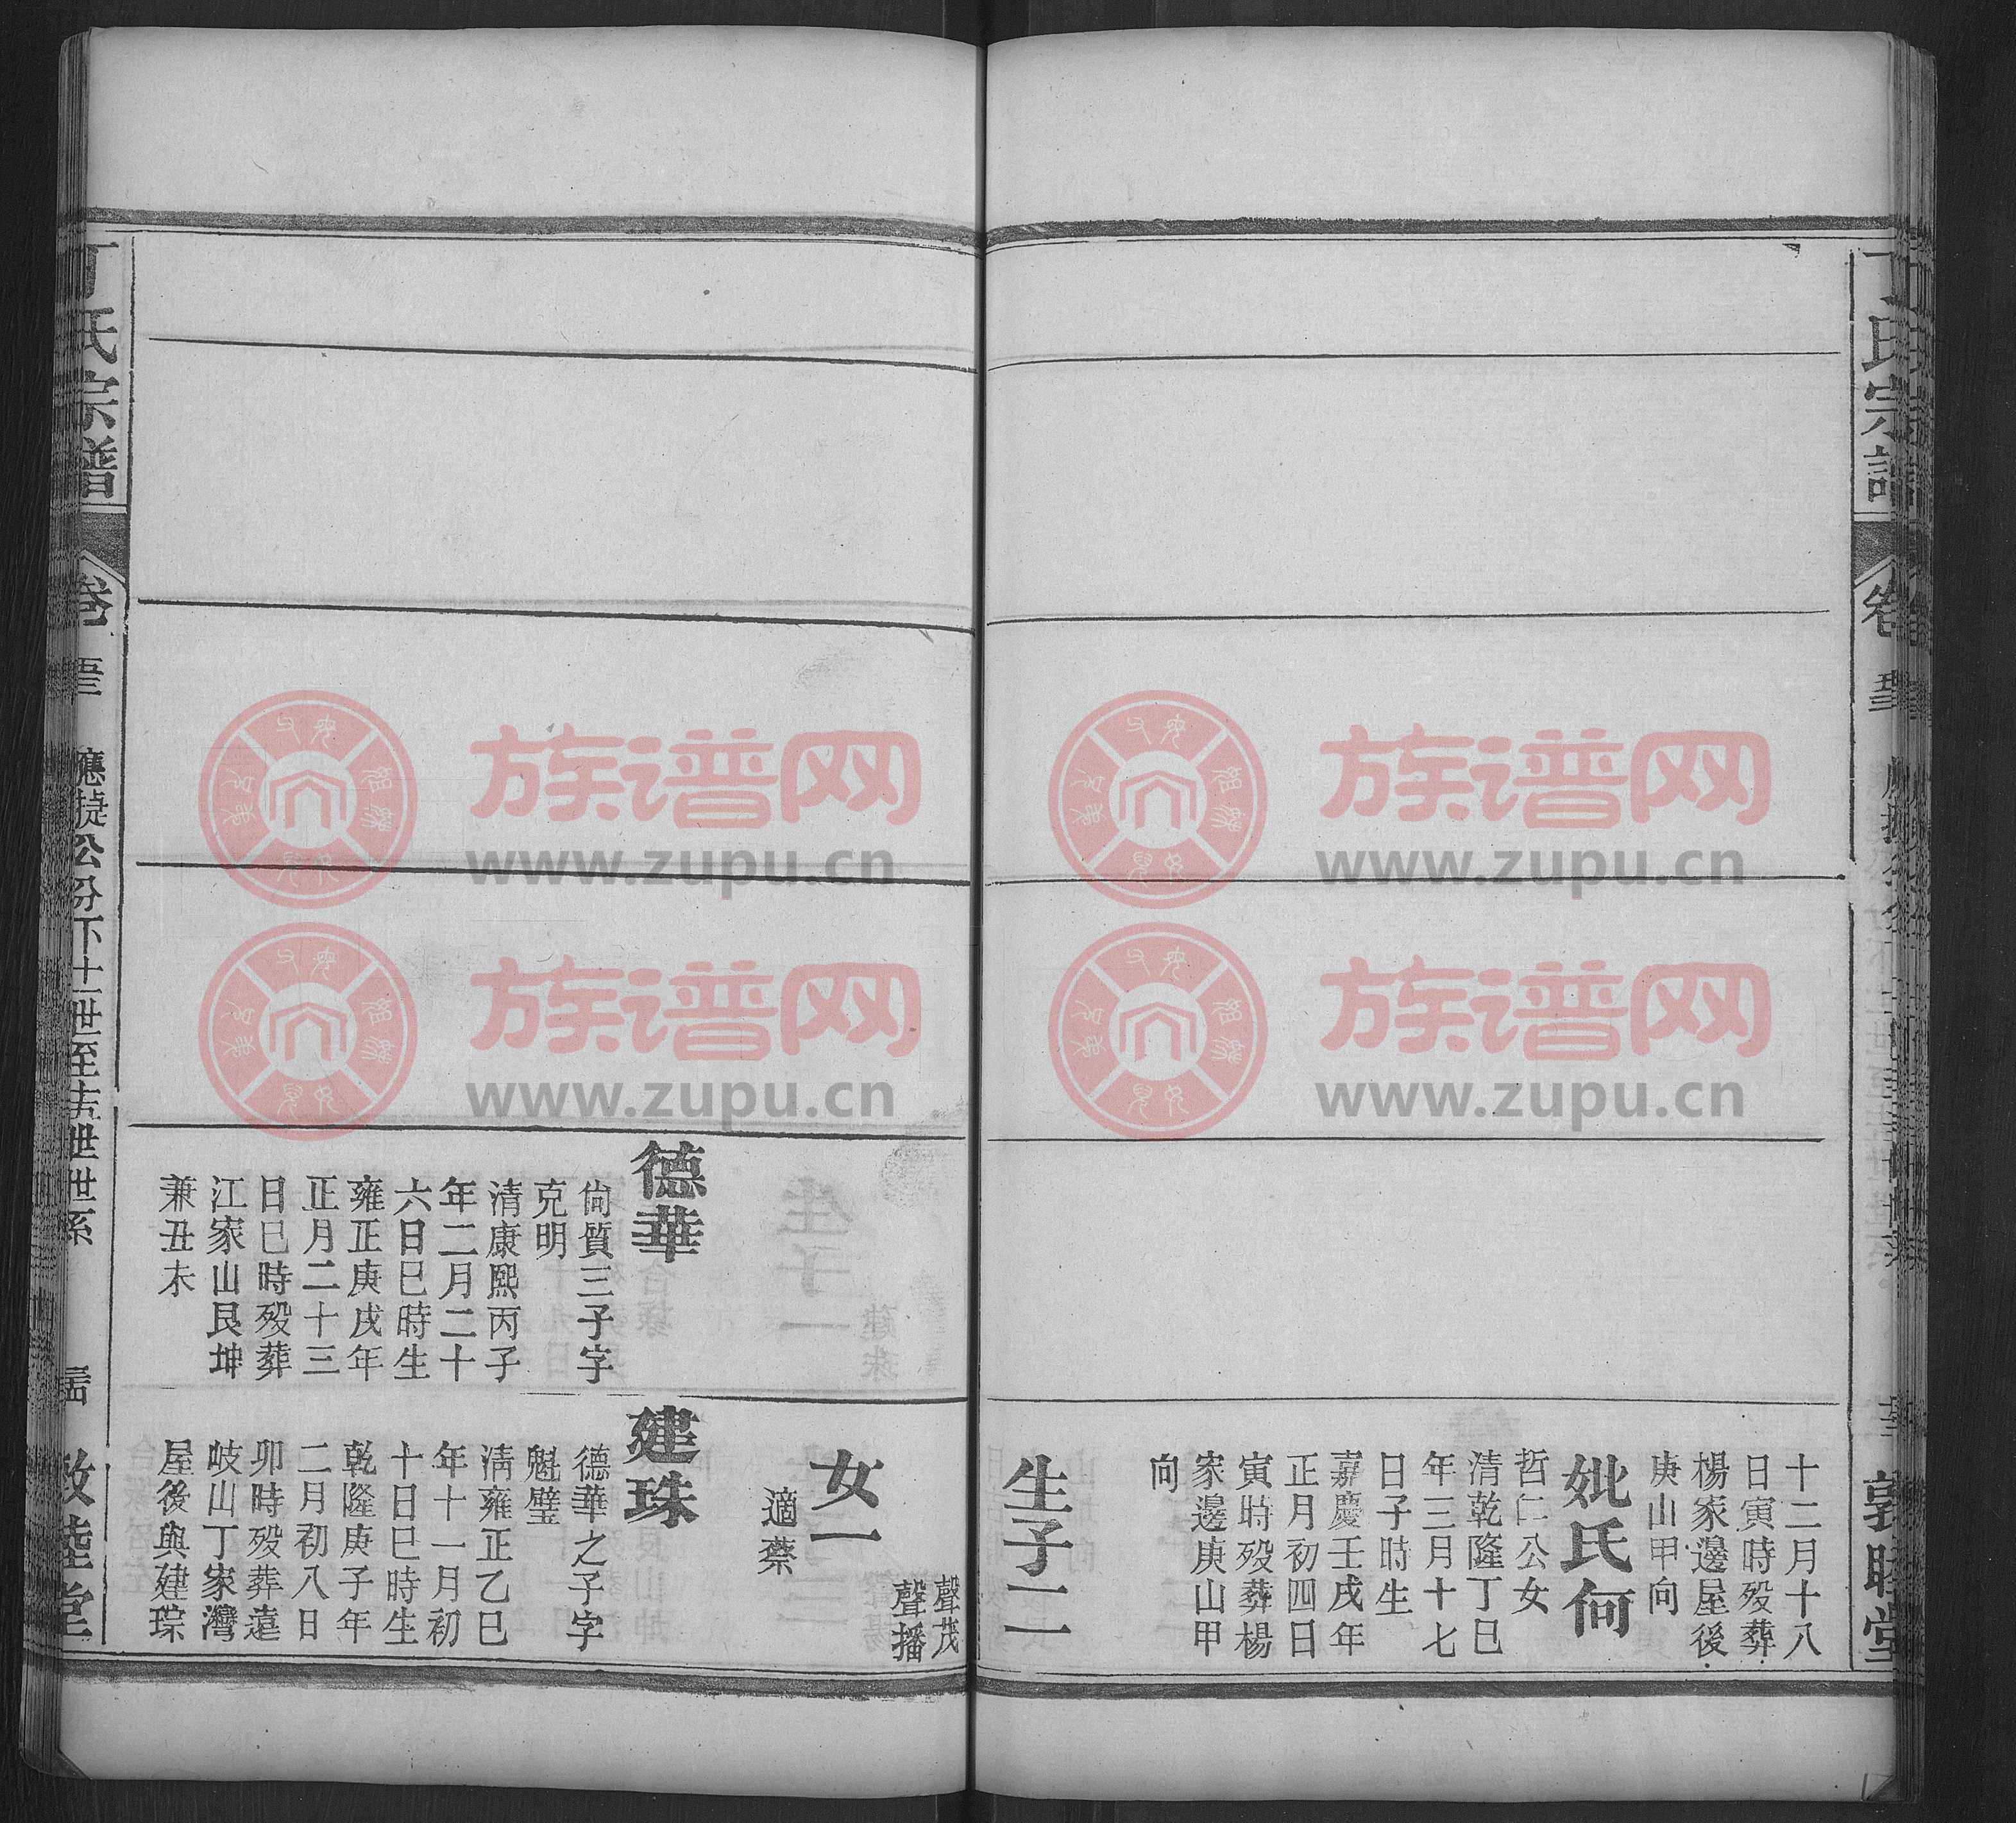 十二月十八
日寅時殁葬
楊家邊屋後
庚山甲向
妣氏何
哲仁公女
清乾隆丁巳
年三月十七
日子時生
嘉慶壬戌年
正月初四日
寅時殁葬楊
家邊庚山甲
向
生子二
聲茂
聲播
女一
適蔡
德華
尙質三子字
克明
清康熙丙子
年二月二十
六日巳時生
雍正庚戌年
正月二十三
日巳時殁葬
江家山艮坤
兼丑未
建珠
德華之子字
魁璧
清雍正乙巳
年十一月初
十日巳時生
乾隆庚子年
二月初八日
卯時殁葬遠
岐山丁家灣
屋後與建琮
丁氏宗譜
卷
應捷公分下十一世至十五世世系
敦睦堂
丁氏宗譜
卷
敦睦堂
族谱网
www.zupu.cn
族谱网
www.zupu.cn
族谱网
www.zupu.cn
族谱网
www.zupu.cn